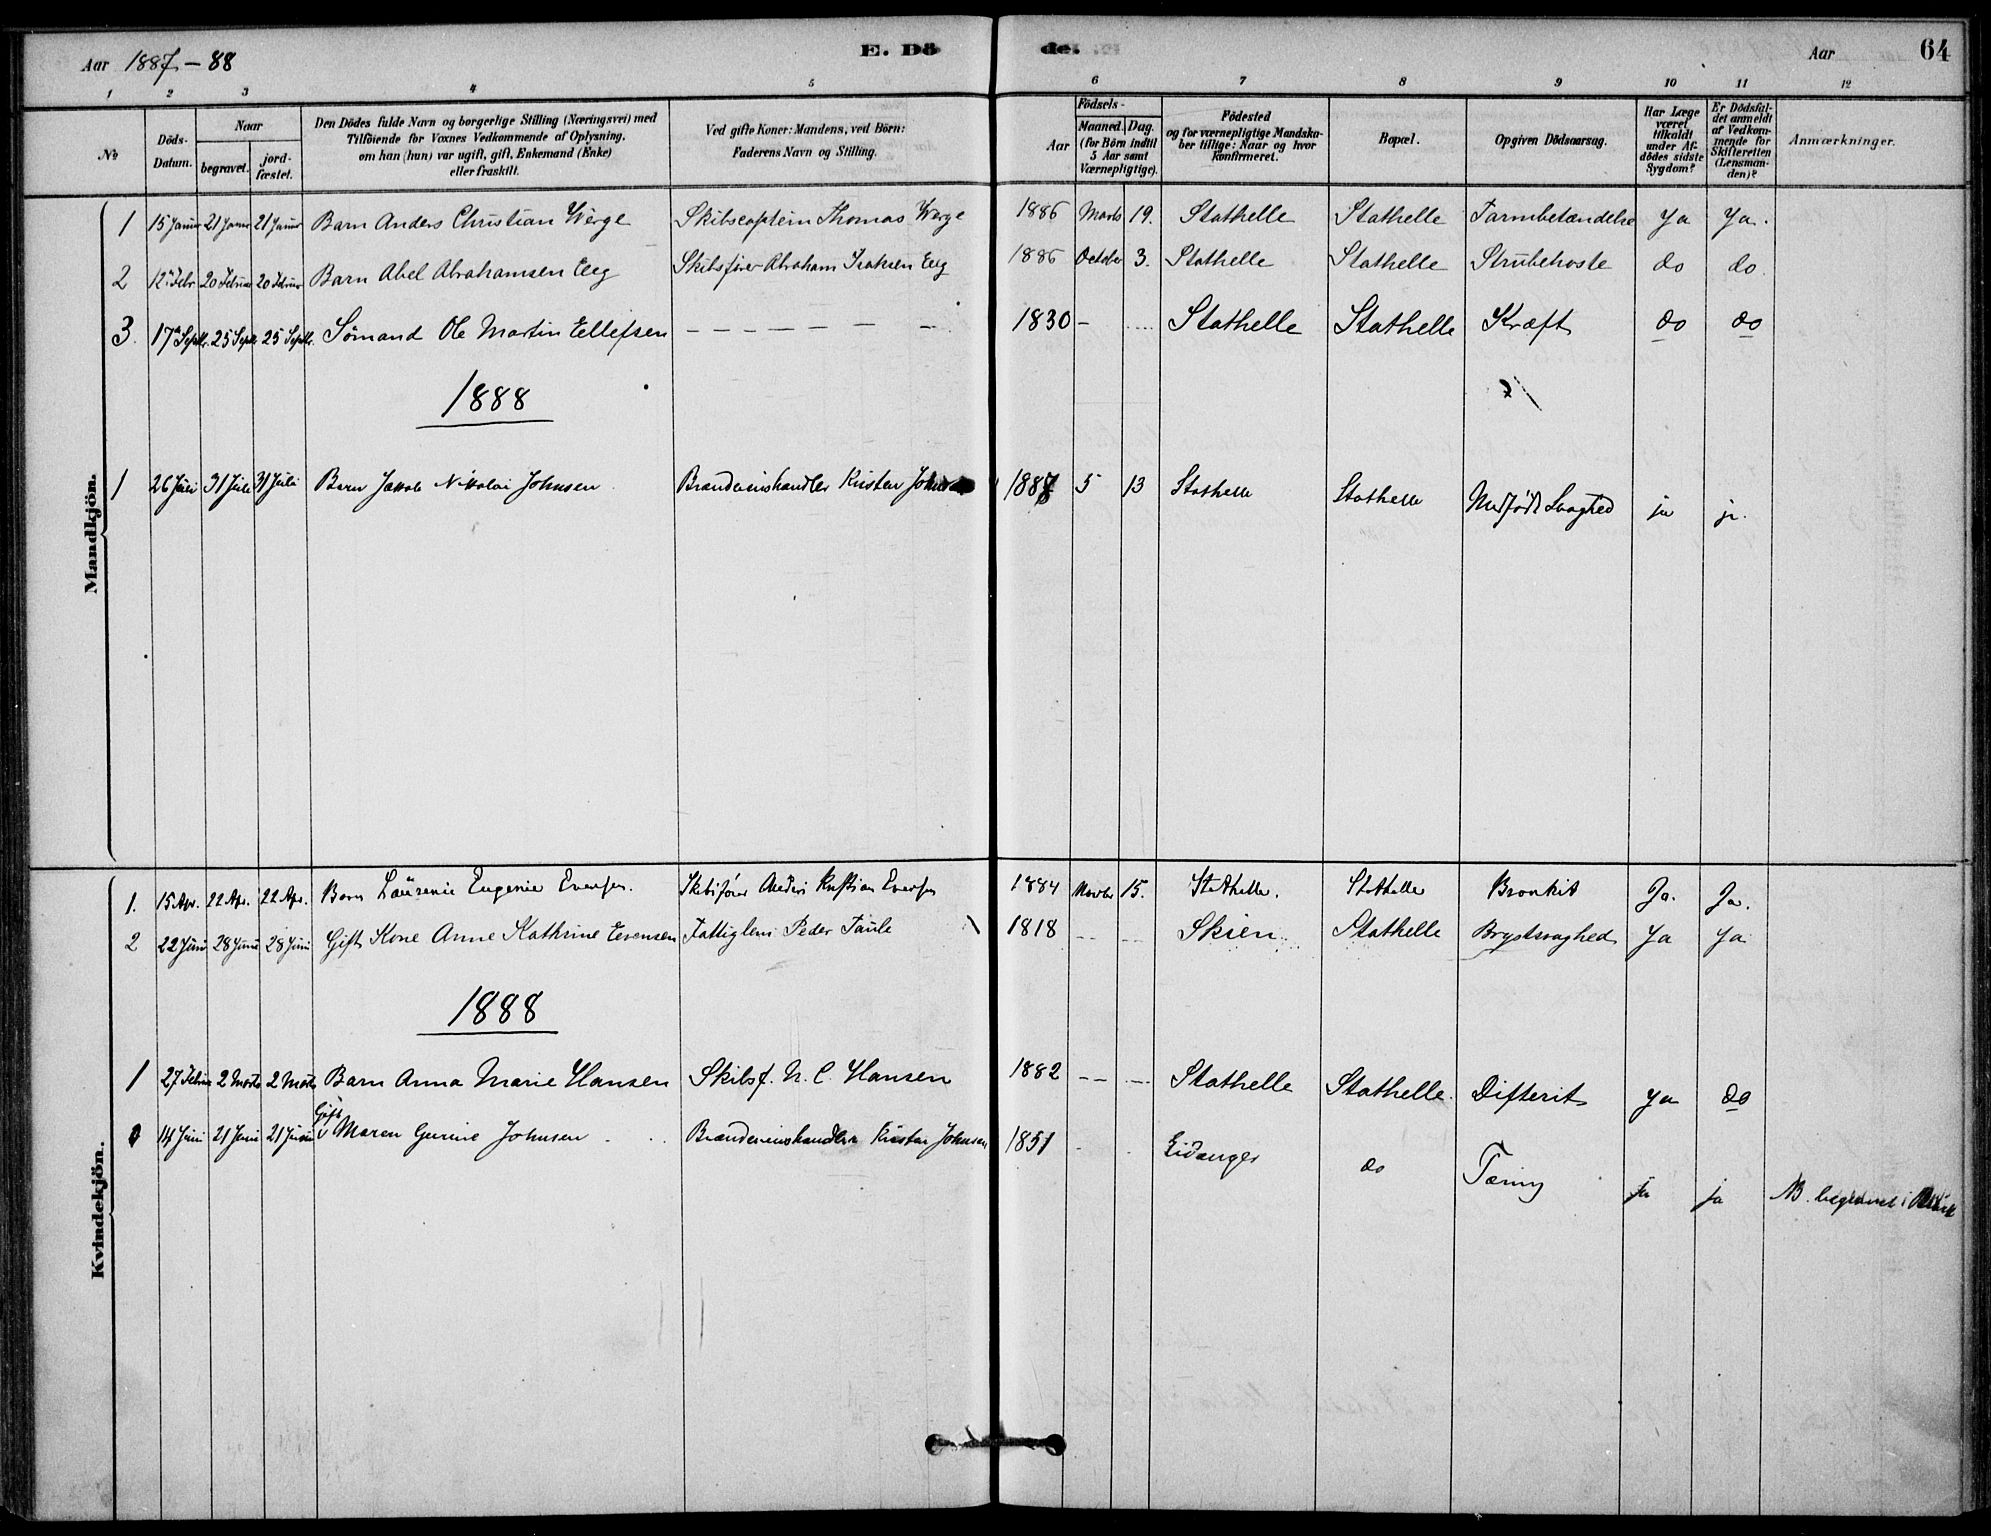 Aar 1887-88 E. Dö de. Aar 64
1 2 3 4 5 6 7 8 9 10 11 12
No
Döds-Datum.
Naar
begravet.
jord-fæstet.
Den Dödes fulde Navn og borgerlige Stilling (Næringsvei) med
Tilföiende for Voxnes Vedkommende af Oplysning.
om han (hun) var ugift, gift, Enkemand (Enke)
eller fraskilt.
Ved gifte Koner: Mandens, ved Börn:
Faderens Navn og Stilling.
Födsels-
Aar
Maaned. Dag.
(for Börn indtil
5 Aar samt
Værnepligtige).
Födested
og for værnepligtige Mandska-
ber tillige: Naar og hvor
konfirmeret.
Bopæl.
Opgiven Dödsaarsag.
Har Læge
været
tilkaldt
under Af-
dödes sidste
Sygdom?
Er Dödsfal-
det anmeldt
af Vedkom-
mende for
Skifteretten
(Lensman-
den)?
Anmærkninger.
Mandkjön.
1 15 Januar 21 Januar 21 Januar Barn Anders Christian Werge Skibscaptein Thomas Werge 1886 Marts 19. Stathelle Stathelle Tarmbetændelse Ja Ja.
2 12 Febr. 20 Februar 20 Februar Barn Abel Abrahamsen Eeg Skibsfører Abraham Isaksen Eeg 1886 October 3. Stathelle Stathelle Strubehoste do do.
3. 17 Septbr. 25 Septbr 25 Septbr. Sømand Ole Martin Ellefsen - - - - - - - 1830 - Stathelle Stathelle Kræft do do
1888
1 26 Juli 31 Juli 31 Juli Barn Jakob Nikolai Johnsen Brændevinshandler Kristen Johnsen 1887 5 13 Stathelle Stathelle Medfødt Svaghed ja ja.
Kvindekjön.
1. 15 Apr. 22 Apr. 22 Apr. Barn Laurenie Eugenie Evensen. Skibsfører Kristian Evensen 1884 Novbr 15. Stathelle. Stathelle Bronkit Ja. Ja.
2 22 Juni 28 Juni 28 Juni Gift Kone Anne Kathrine Evensen Fattiglem Peder Taule 1818 - - Skien Stathelle Brystsvaghed Ja Ja
1888
1 27 Februar 2 Marts 2 Marts Barn Anna Marie Hansen Skibsf. N. C. Hansen 1882 - - Stathelle Stathelle. Difterit Ja do
14 Juni 21 Juni 21 Juni Gift Maren Gurine Johnsen Brændevinshandler Kristen Johnsen 1851 Eidanger do Tæring ja ja NB. begravet i